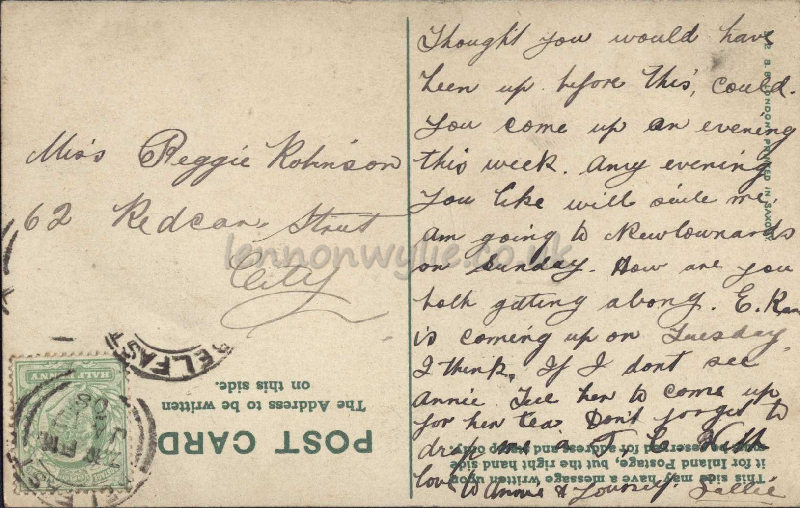 Miss Peggie Robinson
62 Redcar Street
City
Thought you would have
been up before this, could
you come up an evening
this week. Any evening
you like will suite me.
am going to Newtownards
on Sunday. How are you
both getting along. E. Kan
is coming up on Tuesday
I think, If I dont see
Annie Tell her to come up
for her tea. Don't forget to
drop me a P. C. With
love to Annie & Yourself. Sallie
POST CARD
The Address to be written
on this side.
This side may have a message written upon
it for Inland Postage, but the right hand side
reserved for address and stamp only.
S. B. LONDON. PRINTED IN SAXONY
HALFPENNY
BELFAST
BELFAST
lennonwylie.co.uk